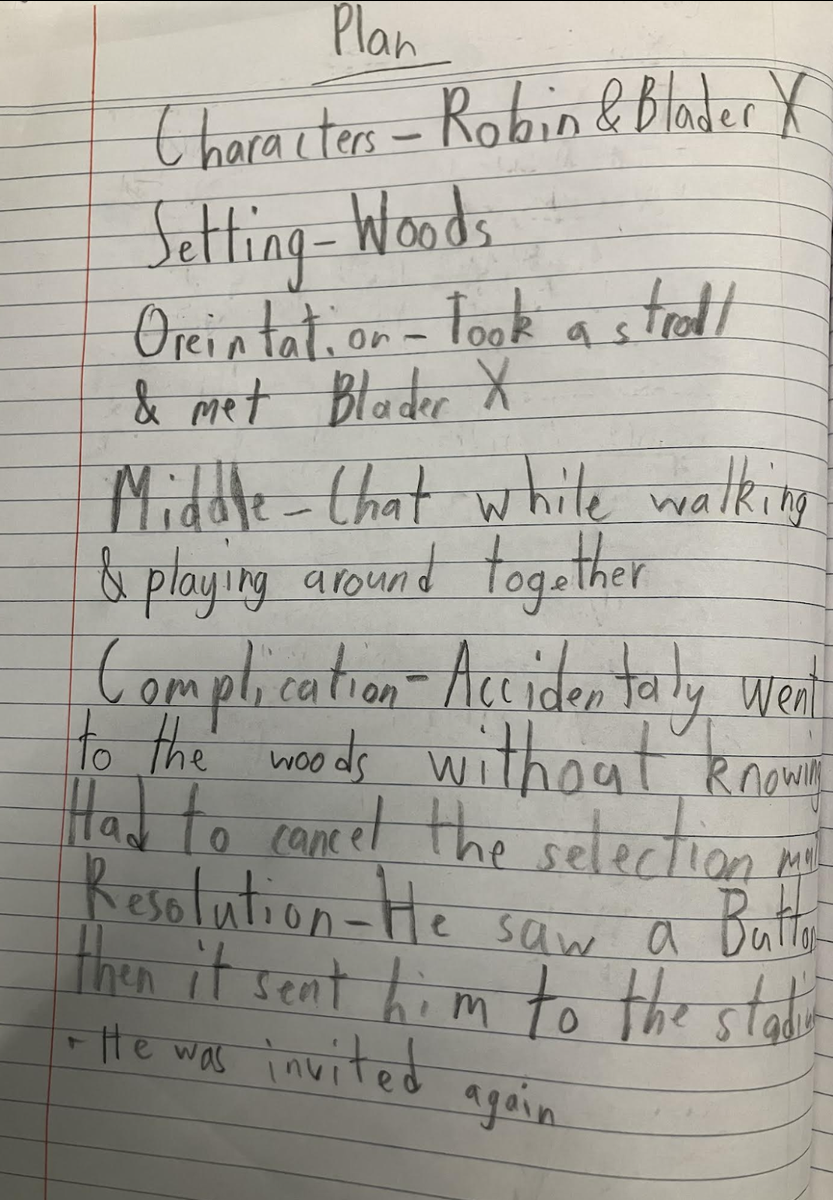 Plan
Characters - Robin & Blader X
Setting - Woods
Oreintation - Took a stroll
& met Blader X
Middle - Chat while walking
& playing around together
Complication - Accidentaly went
to the woods without knowing
Had to cancel the selection
Resolution - He saw a Button
then it sent him to the
- He was invited again